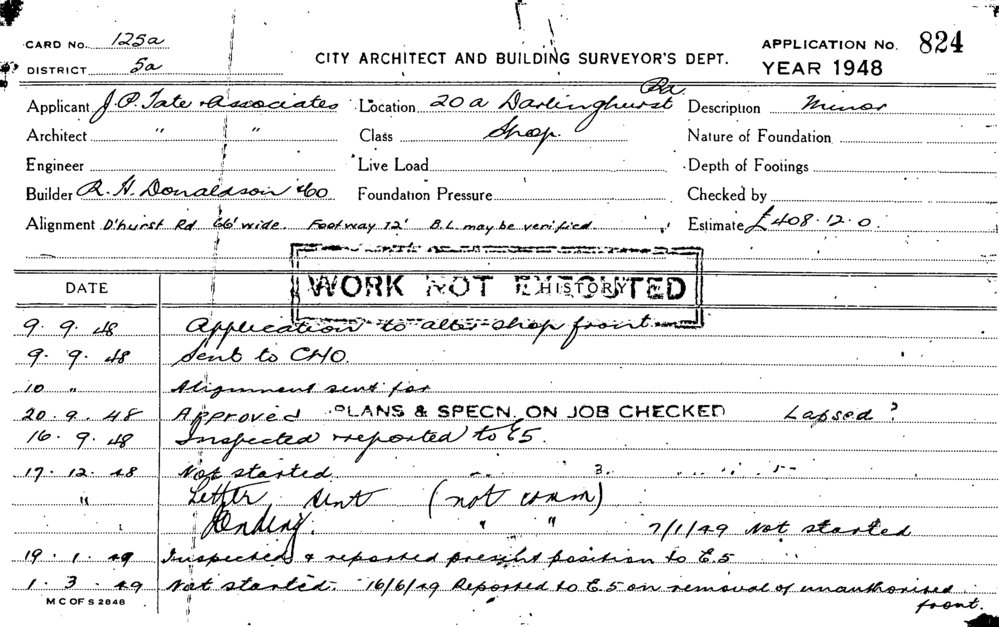 CARD No. 125a
DISTRICT 5a
CITY ARCHITECT AND BUILDING SURVEYOR'S DEPT.
APPLICATION No. 824
YEAR 1948
Applicant J.P. Tate & Associates Location 20a Darlinghurst Rd. Description Minor
Architect " " Class Shop. Nature of Foundation
Engineer Live Load Depth of Footings
Builder R. H. Donaldson & Co. Foundation Pressure Checked by
Alignment D'hurst Rd 66' wide. Footway 12' B.L. may be verified. Estimate £408.12.0.
WORK NOT EXECUTED
DATE HISTORY
9. 9. 48 Application to alter shop front
9. 9. 48 Sent to CHO.
10 " Alignment sent for
20. 9. 48 Approved PLANS & SPECN. ON JOB CHECKED Lapsed?
16. 9. 48 Inspected & reported to E5.
17. 12. 48 Not started
" Letter sent (not comm)
Pending. " " 7/1/49 Not started
19. 1. 49 Inspected & reported present position to E.5
1. 3. 49 Not started. 16/6/49 Reported to E.5 on removal of unauthorised front.
M C OF S 2848